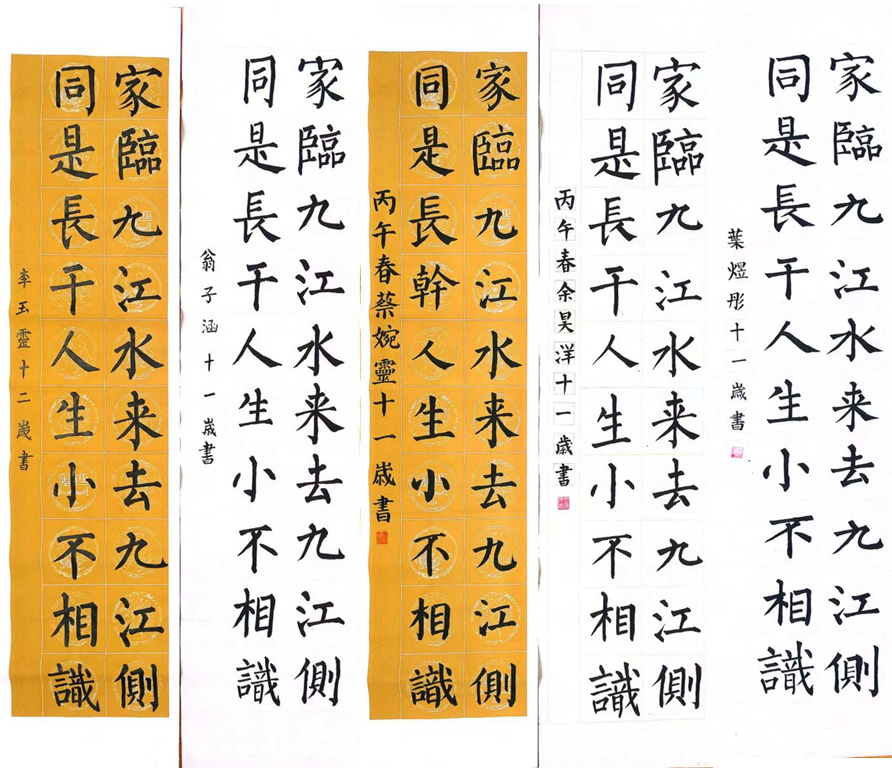 家臨九江水来去九江側
同是長干人生小不相識
葉煜彤十一歲書
家臨九江水来去九江側
同是長干人生小不相識
丙午春余昊洋十一歲書
家臨九江水来去九江側
同是長幹人生小不相識
丙午春蔡婉靈十一歲書
家臨九江水来去九江側
同是長干人生小不相識
翁子涵十一歲書
家臨九江水来去九江側
同是長干人生小不相識
李玉靈十二歲書